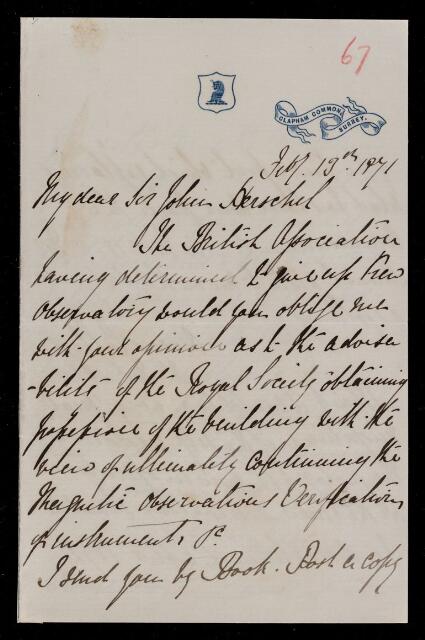 67
CLAPHAM COMMON,
SURREY.
Feby. 13th 1871
My dear Sir John Herschel
The British Association
having determined to give up Kew
Observatory would you oblige me
with your opinion as to the advisa
-bility of the Royal Society obtaining
possession of the building with the
view of ultimately continuing the
Magnetic Observations Verification
of instruments &c
I send you by Book-Post a copy